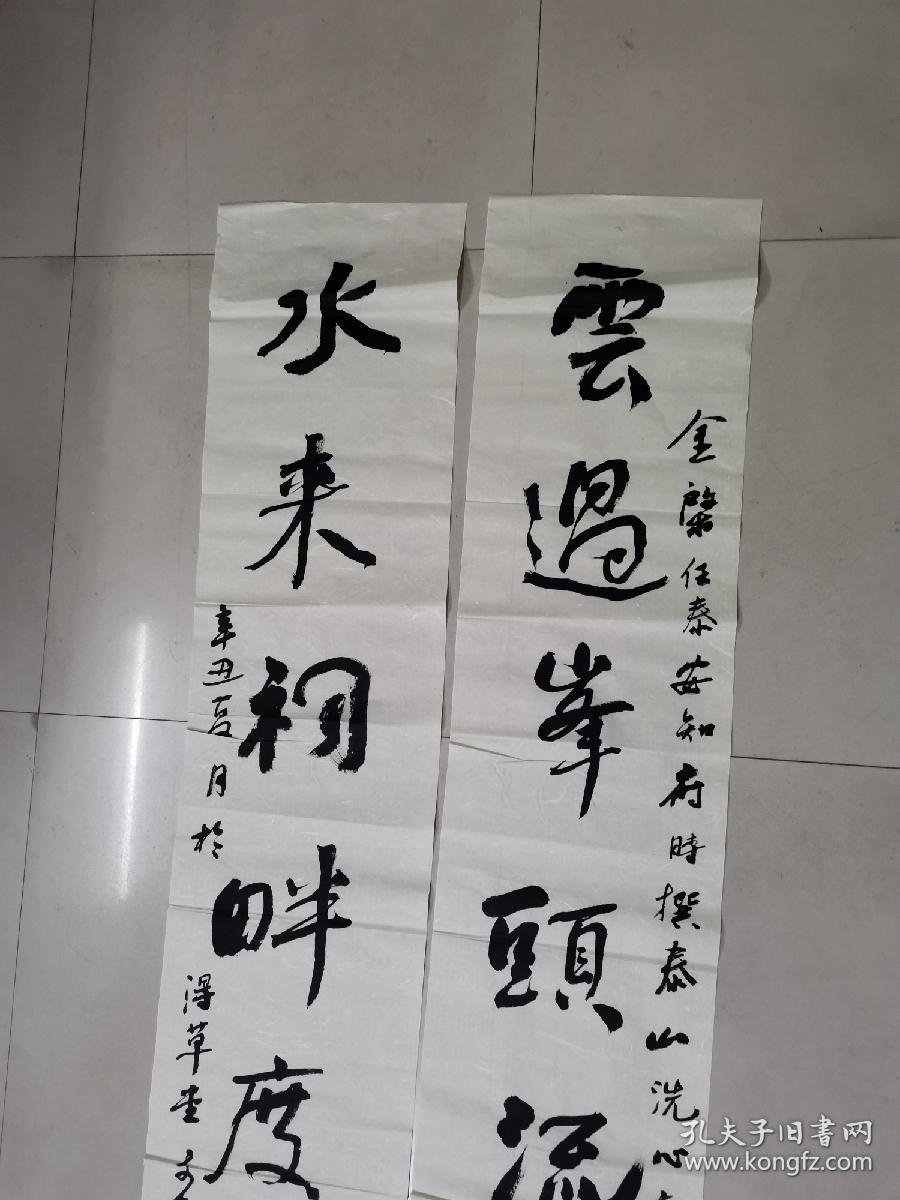 金棨任泰安知府時撰泰山洗心
雲過峯頭流
水来祠畔度
辛丑夏月於
得草堂
孔夫子旧書网
www.kongfz.com